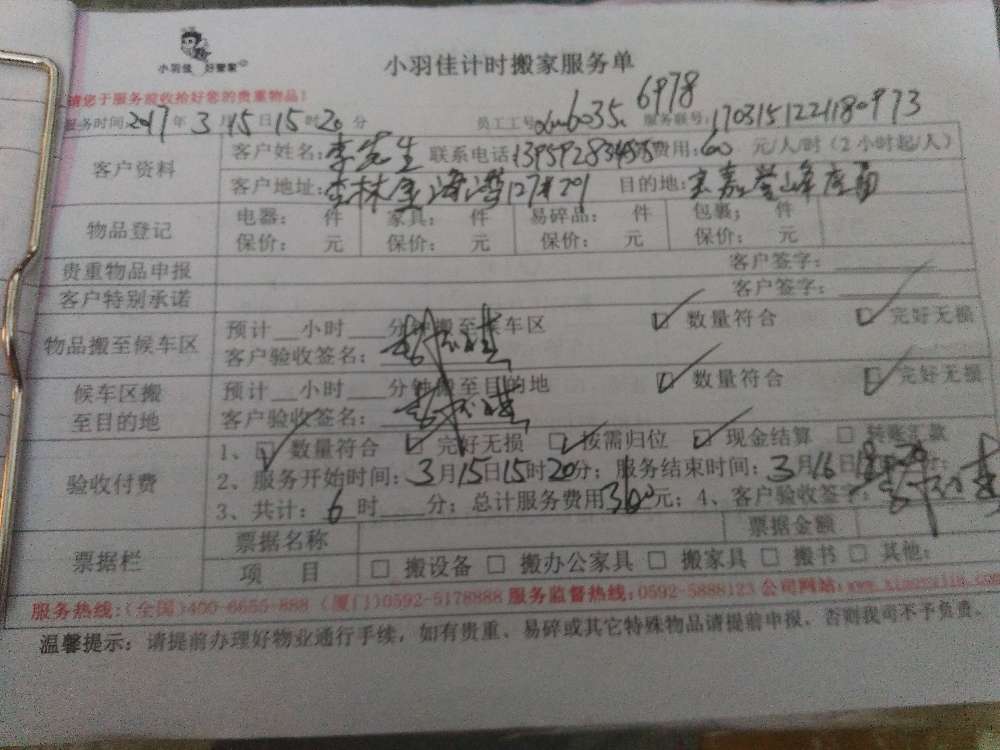 小羽佳 好管家
小羽佳计时搬家服务单
请您于服务前收拾好您的贵重物品!
服务时间:2017年3月15日15时20分 员工工号 6035. 6978 服务联号:170315122118 0973
客户资料 客户姓名:李先生 联系电话 费用:60元/人/时(2小时起/人)
客户地址: 目的地:
物品登记 电器: 件 家具: 件 易碎品: 件 包裹: 件
保价: 元 保价: 元 保价: 元 保价: 元
贵重物品申报 客户签字:
客户特别承诺 客户签字:
物品搬至候车区 预计__小时___分钟搬至候车区 ☑ 数量符合 ☑ 完好无损
客户验收签名:
候车区搬至目的地 预计__小时___分钟搬至目的地 ☑ 数量符合 ☑ 完好无损
客户验收签名:
验收付费 1、☑ 数量符合 ☑ 完好无损 ☑ 按需归位 ☑ 现金结算 □ 转账汇款
2、服务开始时间:3月15日15时20分;服务结束时间:3月16日
3、共计:6时___分;总计服务费用360元;4、客户验收签字:
票据栏 票据名称 票据金额
项 目 □ 搬设备 □ 搬办公家具 □ 搬家具 □ 搬书 □ 其他:
服务热线:(全国)400-6655-888 (厦门)0592-5178888 服务监督热线:0592-5888123 公司网站:
温馨提示:请提前办理好物业通行手续,如有贵重、易碎或其它特殊物品请提前申报,否则我司不予负责。